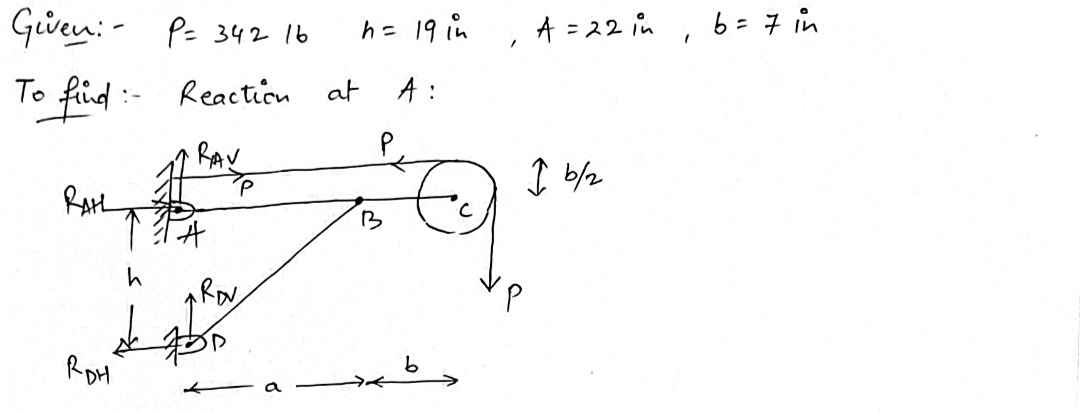 Given:- P= 342 lb h= 19 in , A = 22 in , b = 7 in
To find :- Reaction at A :
RAV
P
P
b/2
RAH
A
B
C
h
RDV
P
D
RDH
a
b